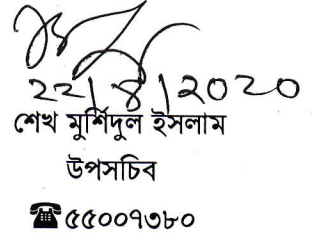 22/8/2020
শেখ মুর্শিদুল ইসলাম
উপসচিব
☎৫৫০০৭৩৮০